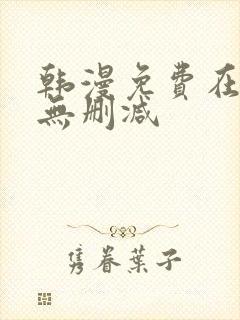 韩漫免費在
無删减
隽眷葉子